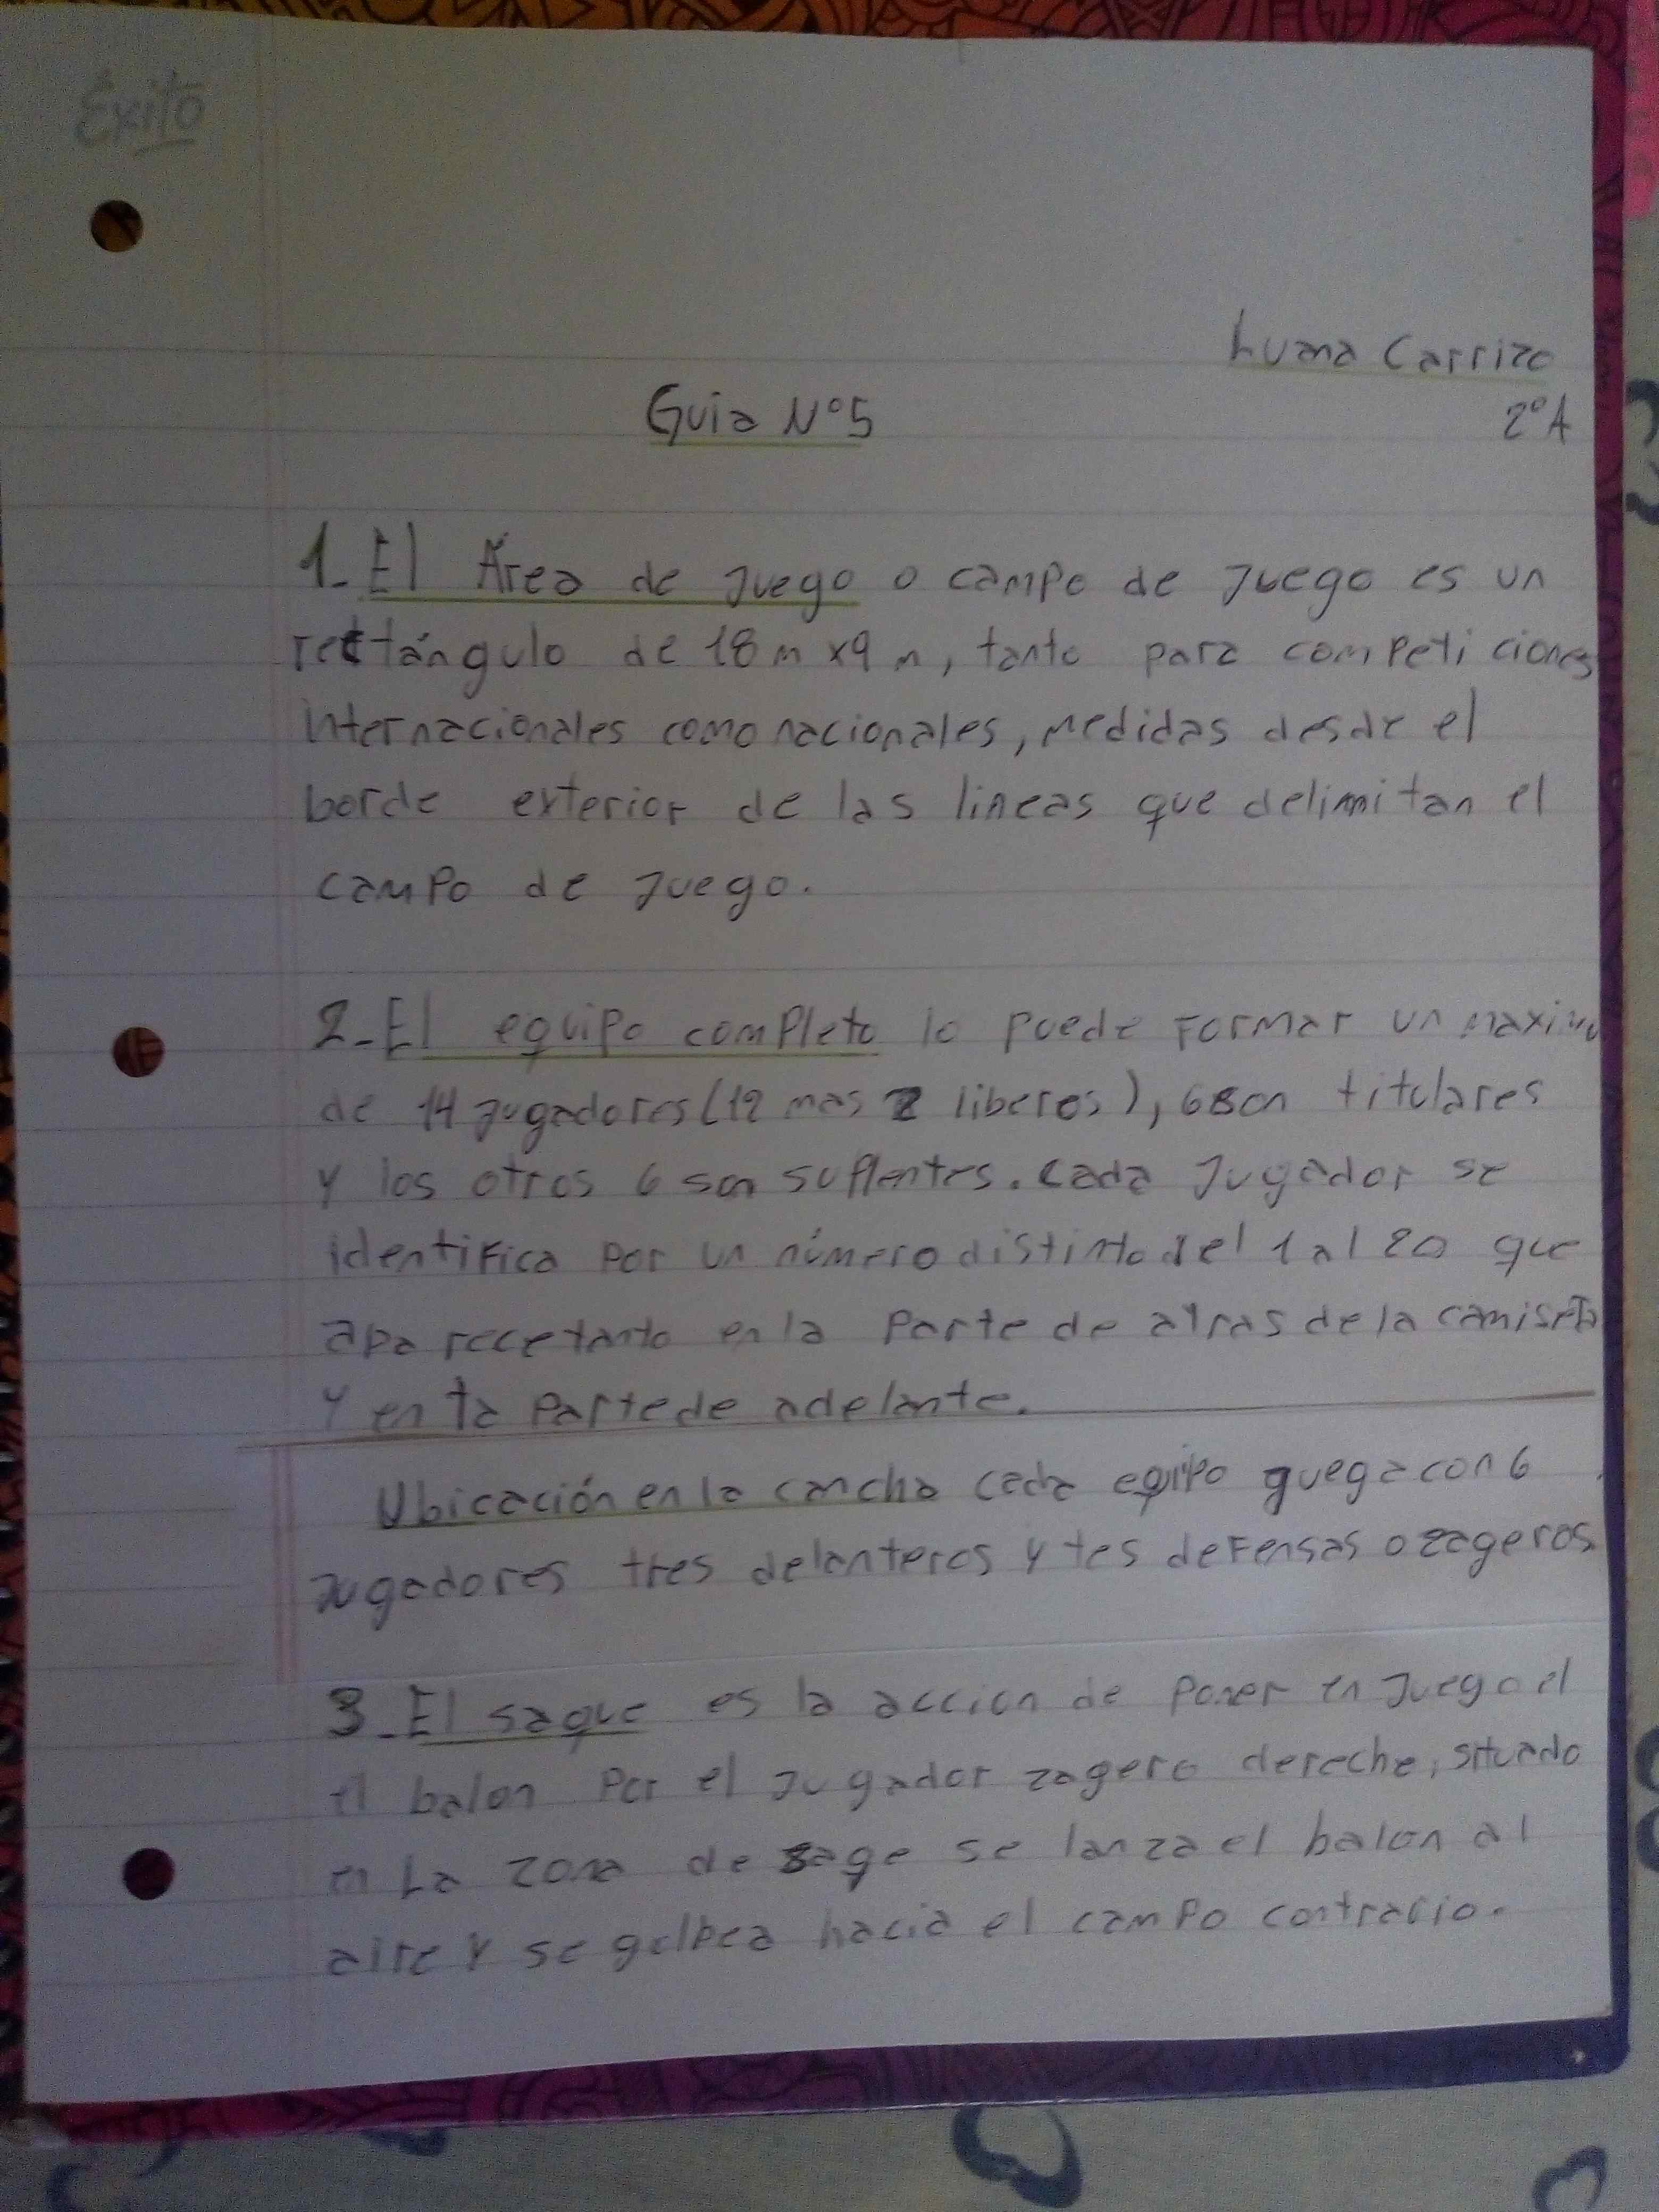 Éxito
Luana Carrizo
Guia N°5
2°A
1_ El Área de juego o campo de juego es un
rectángulo de 18 m x 9 m, tanto para competiciones
internacionales como nacionales, medidas desde el
borde exterior de las lineas que delimitan el
campo de juego.
2_ El equipo completo lo puede formar un maximo
de 14 jugadores (12 mas 2 liberos), 6 son titulares
y los otros 6 son suplentes. Cada jugador se
identifica por un número distinto del 1 al 20 que
aparece tanto en la parte de atras de la camiseta
y en la parte de adelante.
Ubicación en la cancha cada equipo guega con 6
jugadores tres delanteros y tes defensas o zageros
3_ El saque es la accion de poner en juego el
el balon por el jugador zagero dereche, situado
en La zona de sage se lanza el balon al
aire y se golpea hacia el campo contrario.